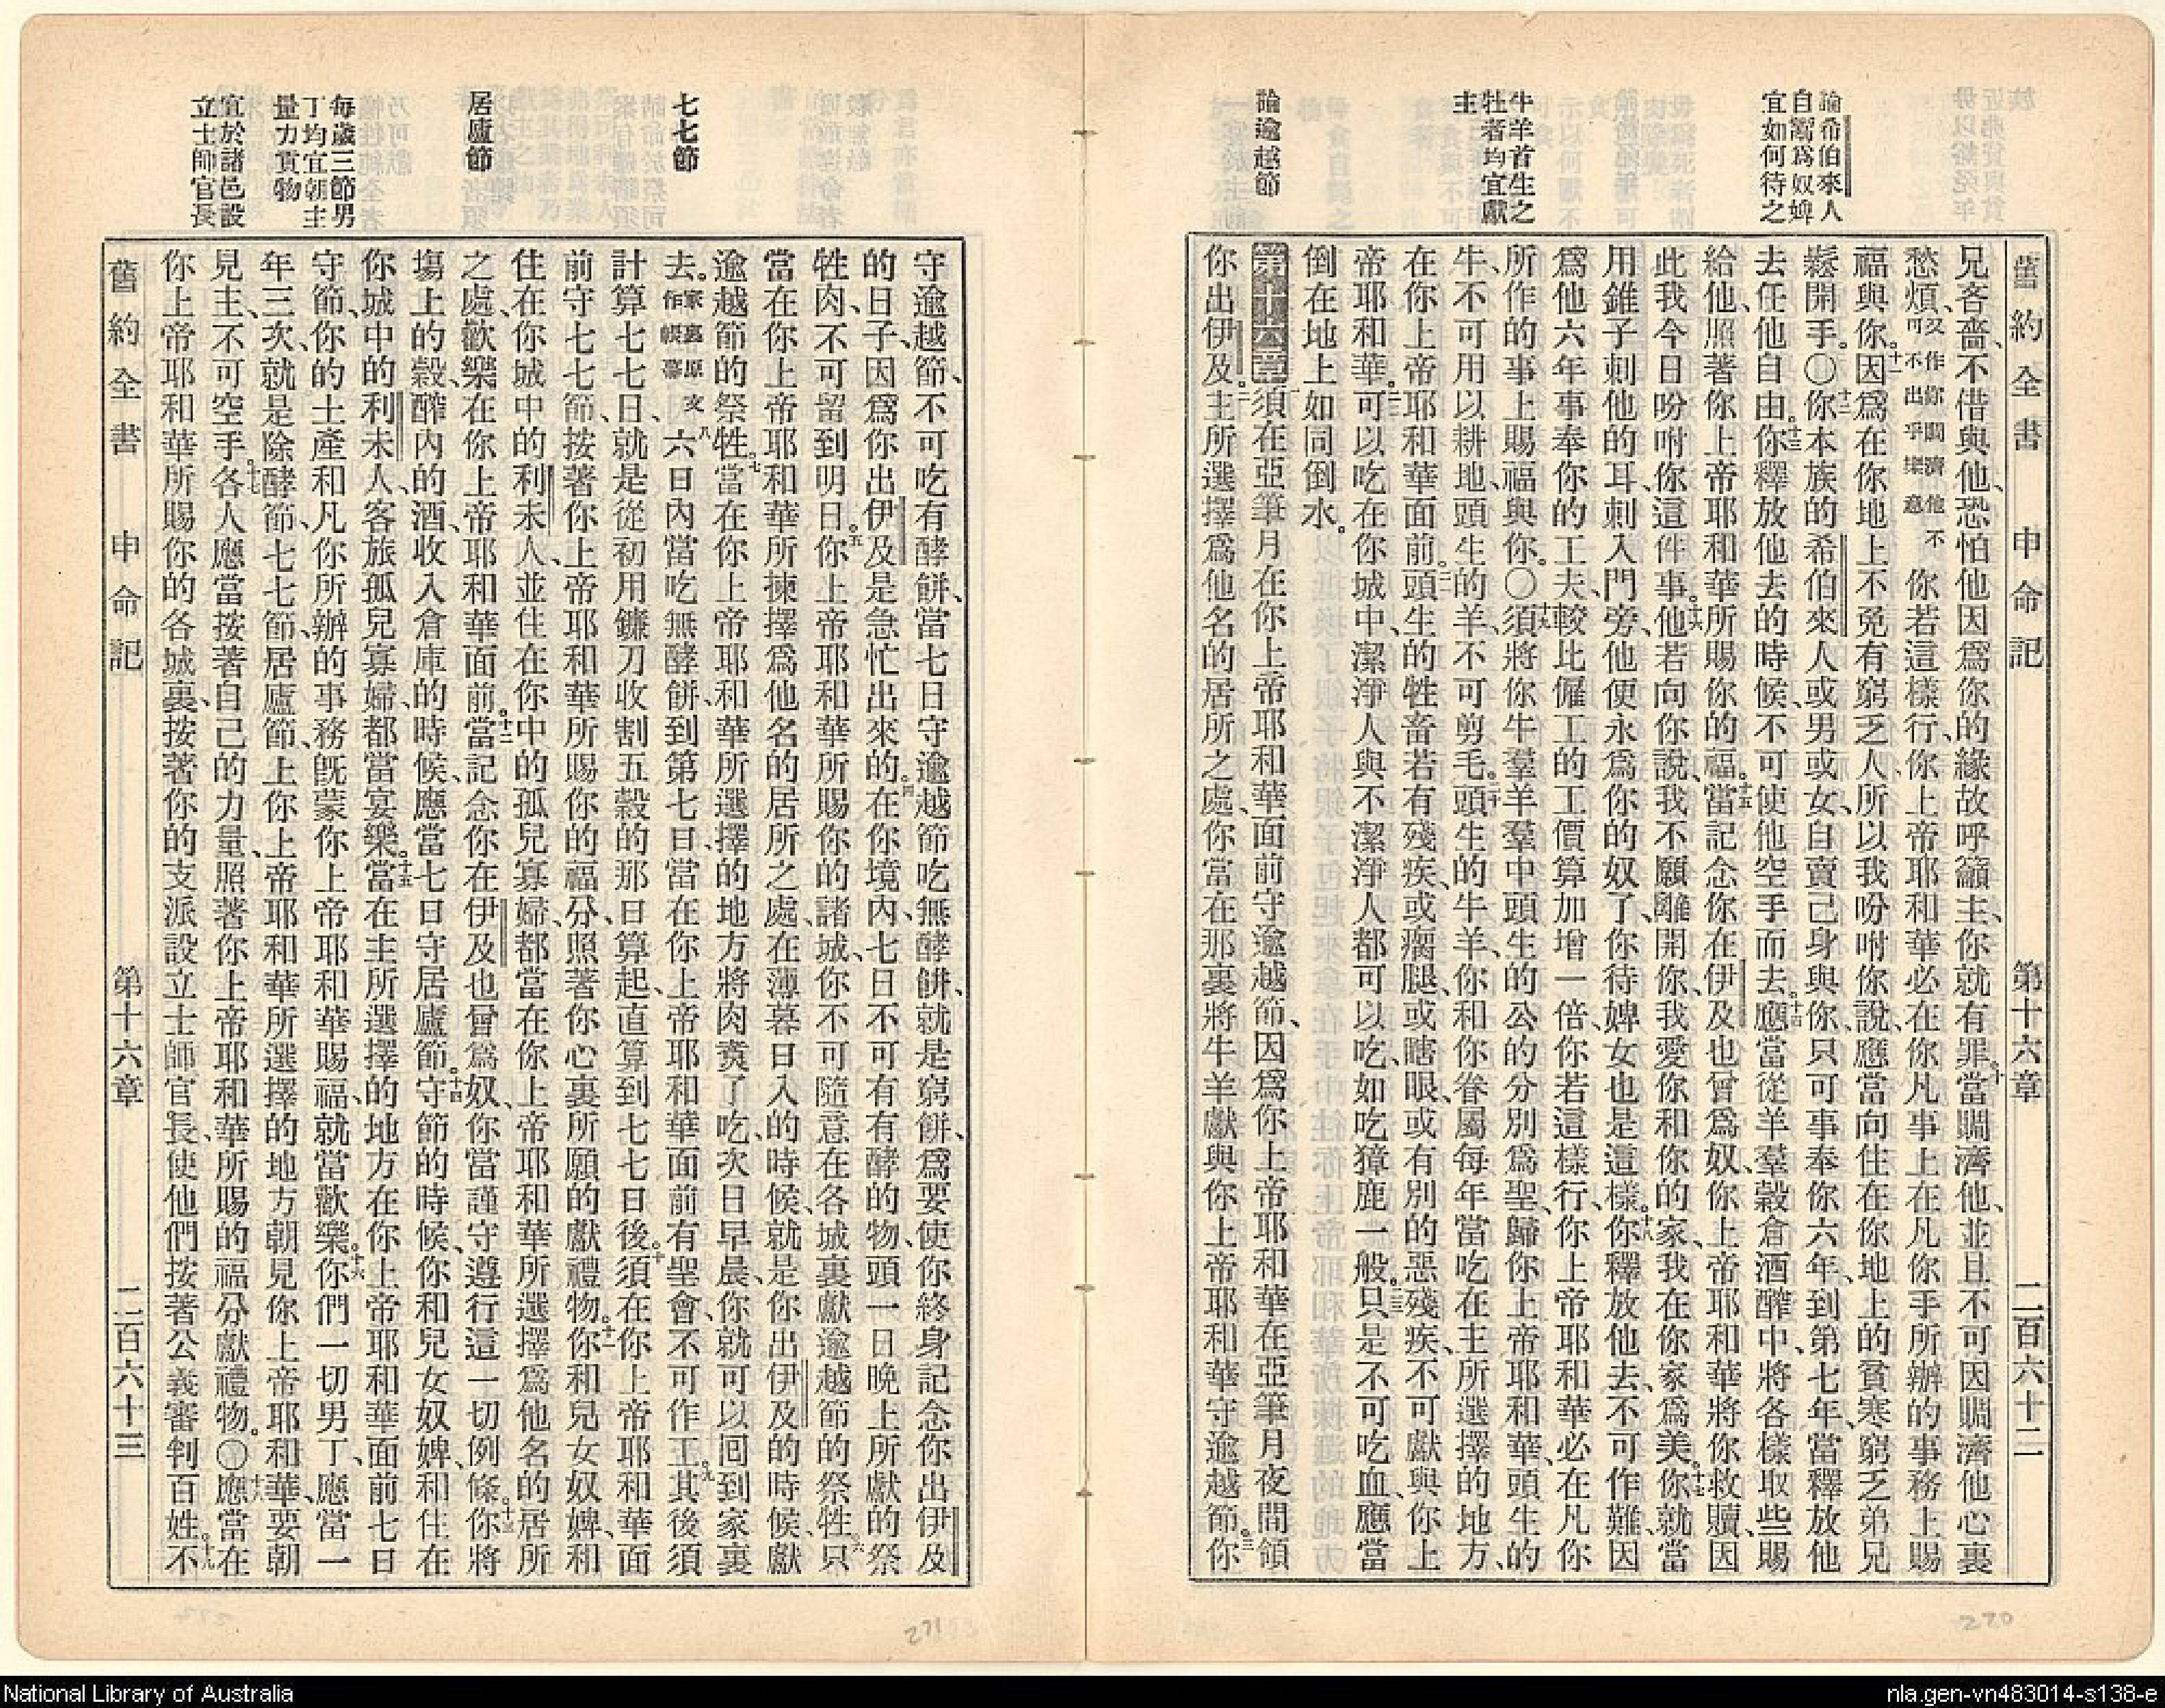 舊約全書　申命記　第十六章　二百六十二
論希伯來人
自鬻爲奴婢
宜如何待之
牛羊首生之
牡者均宜獻
主
論逾越節
兄吝嗇、不借與他、恐怕他因爲你的緣故呼籲主、你就有罪。十當賙濟他、並且不可因賙濟他心裏
愁煩、又作你賙濟他不可不出乎樂意你若這樣行、你上帝耶和華必在你凡事上在凡你手所辦的事務上賜
福與你。十一因爲在你地上不免有窮乏人、所以我吩咐你說、應當向住在你地上的貧寒窮乏弟兄
鬆開手。〇十二你本族的希伯來人或男或女、自賣己身與你、只可事奉你六年、到第七年、當釋放他
去任他自由。十三你釋放他去的時候、不可使他空手而去。十四應當從羊羣穀倉酒醡中、將各樣取些賜
給他、照著你上帝耶和華所賜你的福。十五當記念你在伊及也曾爲奴、你上帝耶和華將你救贖、因
此我今日吩咐你這件事。十六他若向你說、我不願離開你、我愛你和你的家、我在你家爲美。十七你就當
用錐子刺他的耳、刺入門旁、他便永爲你的奴了、你待婢女也是這樣。十八你釋放他去、不可作難、因
爲他六年事奉你的工夫、較比僱工的工價算加增一倍、你若這樣行、你上帝耶和華必在凡你
所作的事上賜福與你。〇十九須將你牛羣羊羣中頭生的公的分別爲聖、歸你上帝耶和華、頭生的
牛、不可用以耕地、頭生的羊、不可剪毛。二十頭生的牛羊、你和你眷屬每年當吃在主所選擇的地方、
在你上帝耶和華面前。二一頭生的牲畜若有殘疾、或瘸腿、或瞎眼、或有別的惡殘疾、不可獻與你上
帝耶和華。二二可以吃在你城中、潔淨人與不潔淨人都可以吃、如吃獐鹿一般。二三只是不可吃血、應當
倒在地上如同倒水。
第十六章一須在亞筆月在你上帝耶和華面前守逾越節、因爲你上帝耶和華在亞筆月夜間領
你出伊及。二主所選擇爲他名的居所之處、你當在那裏將牛羊獻與你上帝耶和華守逾越節。三你
220
七七節
居廬節
每歲三節男
丁均宜朝主
量力貢物
宜於諸邑設
立士師官長
守逾越節、不可吃有酵餅、當七日守逾越節吃無酵餅、就是窮餅、爲要使你終身記念你出伊及
的日子、因爲你出伊及是急忙出來的。四在你境內、七日不可有有酵的物、頭一日晚上所獻的祭
牲肉、不可留到明日。五你上帝耶和華所賜你的諸城、你不可隨意在各城裏獻逾越節的祭牲。六只
當在你上帝耶和華所揀擇爲他名的居所之處、在薄暮日入的時候、就是你出伊及的時候、獻
逾越節的祭牲。七當在你上帝耶和華所選擇的地方將肉煑了吃、次日早晨、你就可以回到家裏
去。家裏原文作帳幕八六日內當吃無酵餅、到第七日、當在你上帝耶和華面前有聖會、不可作工。九其後須
計算七七日、就是從初用鐮刀收割五穀的那日算起、直算到七七日後。十須在你上帝耶和華面
前守七七節、按著你上帝耶和華所賜你的福分、照著你心裏所願的獻禮物。十一你和兒女奴婢、和
住在你城中的利未人、並住在你中的孤兒寡婦、都當在你上帝耶和華所選擇爲他名的居所
之處、歡樂在你上帝耶和華面前。十二當記念你在伊及也曾爲奴、你當謹守遵行這一切例條。十三你將
塲上的穀、醡內的酒、收入倉庫的時候、應當七日守居廬節。十四守節的時候、你和兒女奴婢、和住在
你城中的利未人、客旅孤兒寡婦、都當宴樂。十五當在主所選擇的地方在你上帝耶和華面前七日
守節、你的土產和凡你所辦的事務、旣蒙你上帝耶和華賜福、就當歡樂。十六你們一切男丁、應當一
年三次、就是除酵節、七七節、居廬節、上你上帝耶和華所選擇的地方朝見你上帝耶和華、要朝
見主、不可空手。十七各人應當按著自己的力量、照著你上帝耶和華所賜的福分獻禮物。〇十八應當在
你上帝耶和華所賜你的各城裏、按著你的支派設立士師官長、使他們按著公義審判百姓。十九不
舊約全書　申命記　第十六章　二百六十三
271
National Library of Australia
nla.gen-vn483014-s138-e